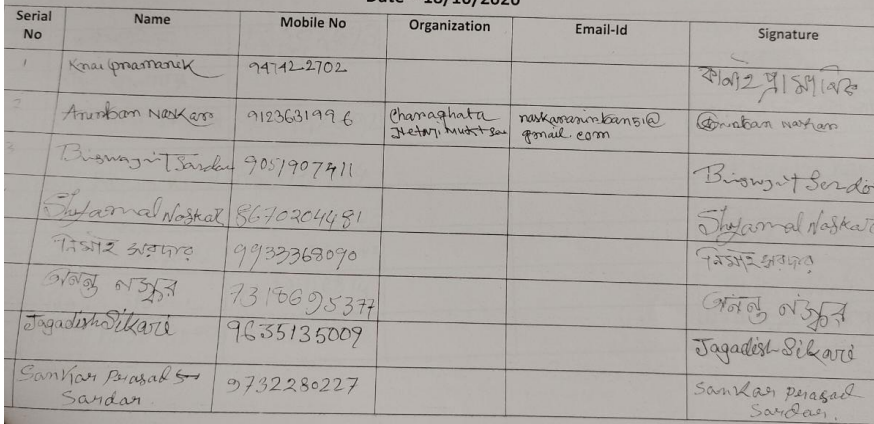 Date - 18/10/2020
Serial No Name Mobile No Organization Email-Id Signature
1 Knai pramanek 947422702 কানাই প্রামানিক
2 Anirban Naskar 9123631996 Charaghata naskaranirban51@ Anirban Naskar
gmail.com
3 Biswajit Sardar 9051907411 Biswajit Serdar
Shyamal Naskar 8670204481 Shyamal Naskar
নিমাই সরদার 9933368090 নিমাই সরদার
অনন্ত নস্কর 7318695377 অনন্ত নস্কর
Jagadish Sikari 9635135009 Jagadish Sikari
Sankar Prasad 9732280227 Sankar Prasad
Sardar. Sardar.